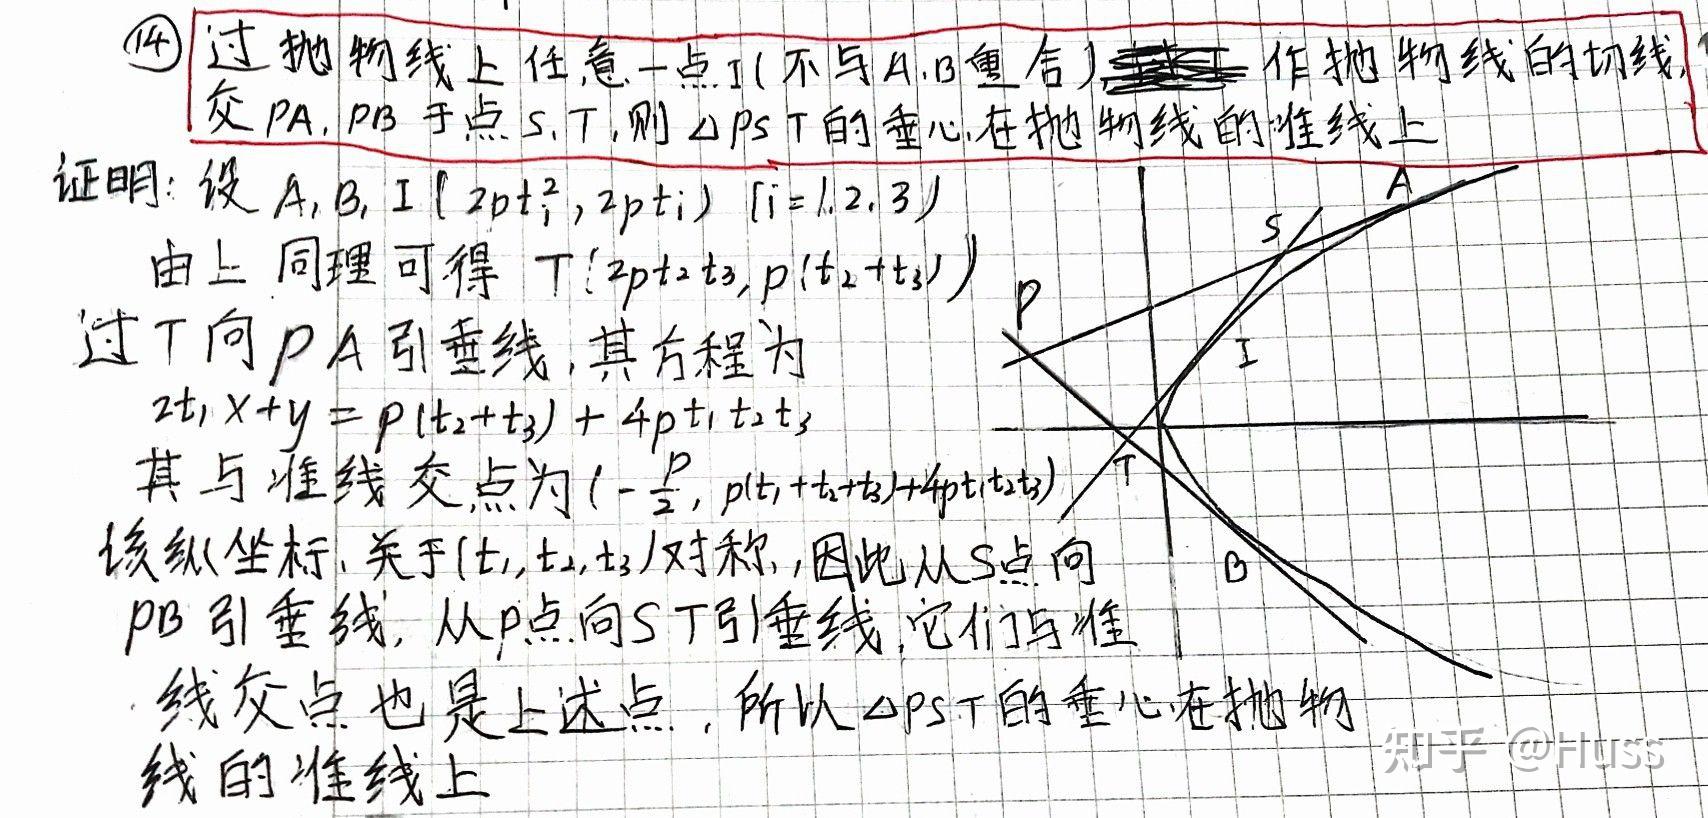 ⑭ 过抛物线上任意一点I(不与A.B重合) 作抛物线的切线,
交PA,PB于点S,T,则△PST的垂心在抛物线的准线上
证明:设A,B,I(2ptᵢ²,2ptᵢ) (i=1.2.3)
由上同理可得 T(2pt₂t₃,p(t₂+t₃))
过T向PA引垂线,其方程为
2t₁x+y=p(t₂+t₃)+4pt₁t₂t₃
其与准线交点为(-p/2, p(t₁+t₂+t₃)+4pt₁t₂t₃)
该纵坐标,关于(t₁,t₂,t₃)对称,因此从S点向
PB引垂线,从P点向ST引垂线,它们与准
线交点也是上述点,所以△PST的垂心在抛物
线的准线上
A
S
P
I
T
B
知乎 @Huss